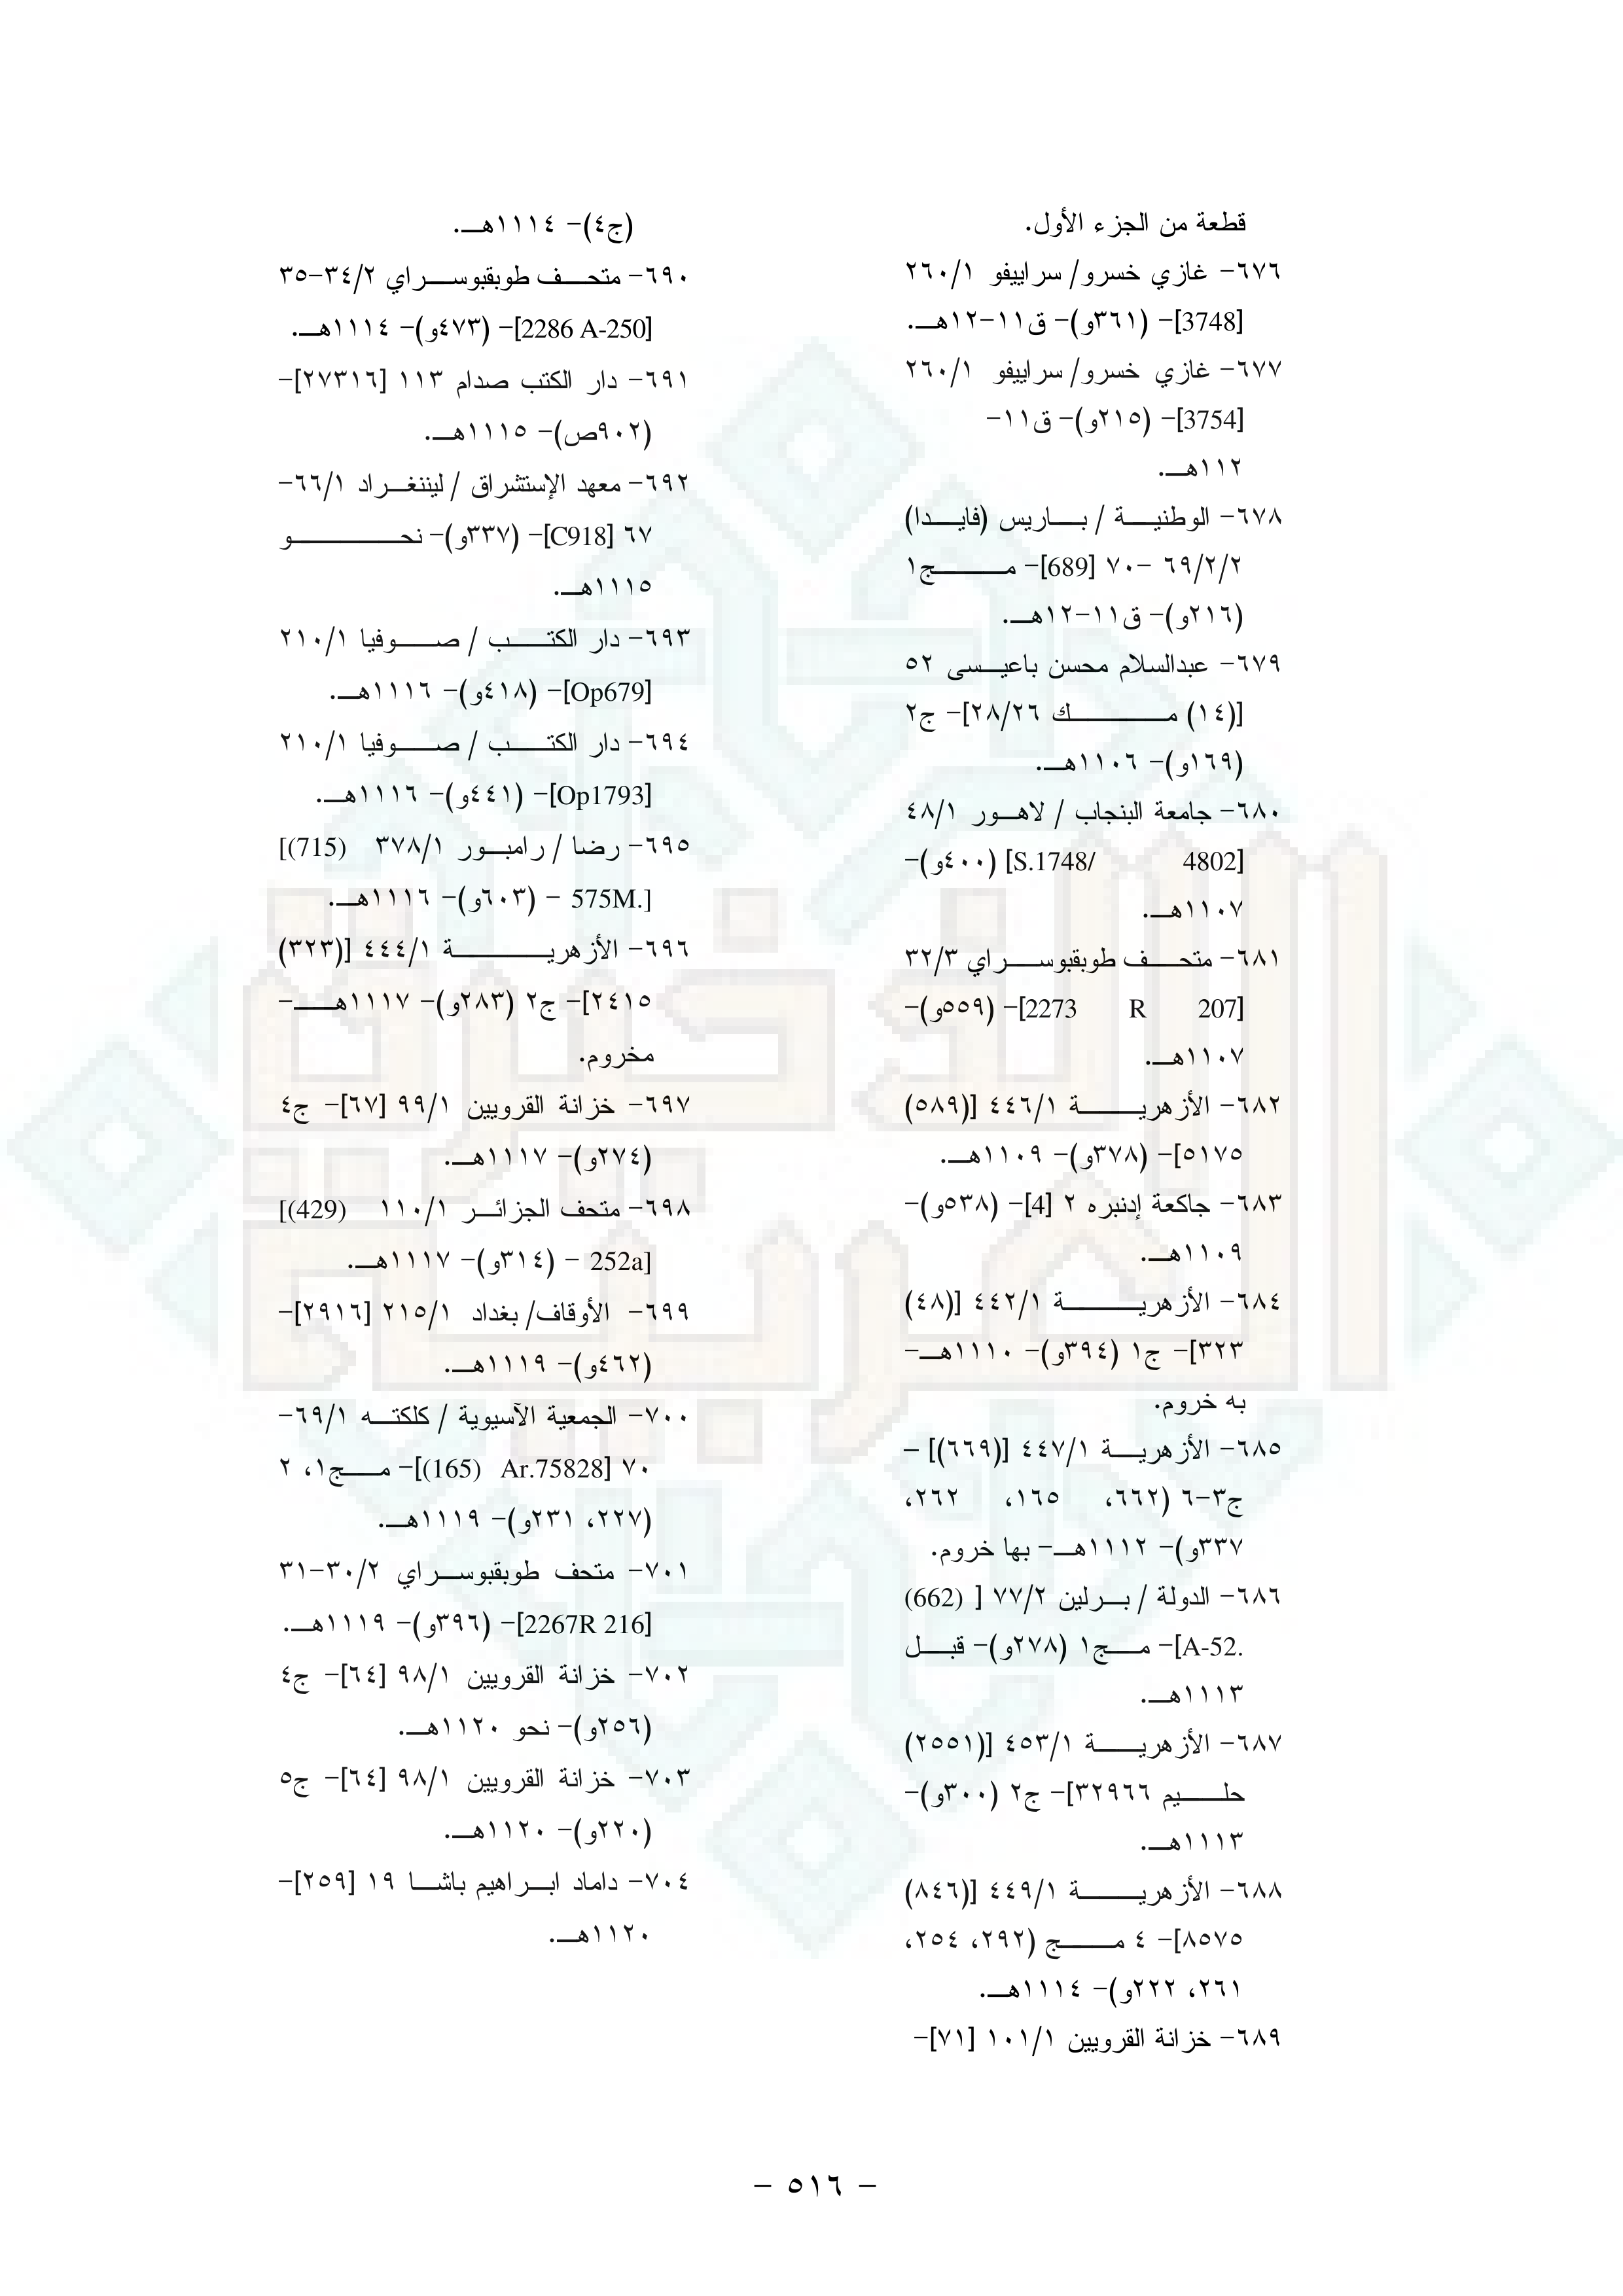 قطعة من الجزء الأول.
٦٧٦- غازي خسرو/ سراييفو ٢٦٠/١
[3748]- (٣٦١و)- ق١١-١٢هـ.
٦٧٧- غازي خسرو/ سراييفو ٢٦٠/١
[3754]- (٢١٥و)- ق١١-
١١٢هـ.
٦٧٨- الوطنية / باريس (فايدا)
٦٩/٢/٢ -٧٠ [689]- مج١
(٢١٦و)- ق١١-١٢هـ.
٦٧٩- عبدالسلام محسن باعيسى ٥٢
[(١٤) مك ٢٨/٢٦]- ج٢
(١٦٩و)- ١١٠٦هـ.
٦٨٠- جامعة البنجاب / لاهور ٤٨/١
[S.1748/ 4802] (٤٠٠و)-
١١٠٧هـ.
٦٨١- متحف طوبقبوسراي ٣٢/٣
[2273 R 207]- (٥٥٩و)-
١١٠٧هـ.
٦٨٢- الأزهرية ٤٤٦/١ [(٥٨٩)
٥١٧٥]- (٣٧٨و)- ١١٠٩هـ.
٦٨٣- جاكعة إدنبره ٢ [4]- (٥٣٨و)-
١١٠٩هـ.
٦٨٤- الأزهرية ٤٤٢/١ [(٤٨)
٣٢٣]- ج١ (٣٩٤و)- ١١١٠هـ-
به خروم.
٦٨٥- الأزهرية ٤٤٧/١ [(٦٦٩)] –
ج٣-٦ (٦٦٢، ١٦٥، ٢٦٢،
٣٣٧و)- ١١١٢هـ- بها خروم.
٦٨٦- الدولة / برلين ٧٧/٢ [ (662)
A-52.]- مج١ (٢٧٨و)- قبل
١١١٣هـ.
٦٨٧- الأزهرية ٤٥٣/١ [(٢٥٥١)
حليم ٣٢٩٦٦]- ج٢ (٣٠٠و)-
١١١٣هـ.
٦٨٨- الأزهرية ٤٤٩/١ [(٨٤٦)
٨٥٧٥]- ٤ مج (٢٩٢، ٢٥٤،
٢٦١، ٢٢٢و)- ١١١٤هـ.
٦٨٩- خزانة القرويين ١٠١/١ [٧١]-
(ج٤)- ١١١٤هـ.
٦٩٠- متحف طوبقبوسراي ٣٤/٢-٣٥
[2286 A-250]- (٤٧٣و)- ١١١٤هـ.
٦٩١- دار الكتب صدام ١١٣ [٢٧٣١٦]-
(٩٠٢ص)- ١١١٥هـ.
٦٩٢- معهد الإستشراق / ليننغراد ٦٦/١-
٦٧ [C918]- (٣٣٧و)- نحو
١١١٥هـ.
٦٩٣- دار الكتب / صوفيا ٢١٠/١
[Op679]- (٤١٨و)- ١١١٦هـ.
٦٩٤- دار الكتب / صوفيا ٢١٠/١
[Op1793]- (٤٤١و)- ١١١٦هـ.
٦٩٥- رضا / رامبور ٣٧٨/١ [(715)
575M.] – (٦٠٣و)- ١١١٦هـ.
٦٩٦- الأزهرية ٤٤٤/١ [(٣٢٣)
٢٤١٥]- ج٢ (٢٨٣و)- ١١١٧هـ-
مخروم.
٦٩٧- خزانة القرويين ٩٩/١ [٦٧]- ج٤
(٢٧٤و)- ١١١٧هـ.
٦٩٨- متحف الجزائر ١١٠/١ [(429)
252a] – (٣١٤و)- ١١١٧هـ.
٦٩٩- الأوقاف/ بغداد ٢١٥/١ [٢٩١٦]-
(٤٦٢و)- ١١١٩هـ.
٧٠٠- الجمعية الآسيوية / كلكته ٦٩/١-
٧٠ [(165) Ar.75828]- مج١، ٢
(٢٢٧، ٢٣١و)- ١١١٩هـ.
٧٠١- متحف طوبقبوسراي ٣٠/٢-٣١
[2267R 216]- (٣٩٦و)- ١١١٩هـ.
٧٠٢- خزانة القرويين ٩٨/١ [٦٤]- ج٤
(٢٥٦و)- نحو ١١٢٠هـ.
٧٠٣- خزانة القرويين ٩٨/١ [٦٤]- ج٥
(٢٢٠و)- ١١٢٠هـ.
٧٠٤- داماد ابراهيم باشا ١٩ [٢٥٩]-
١١٢٠هـ.
- ٥١٦ -